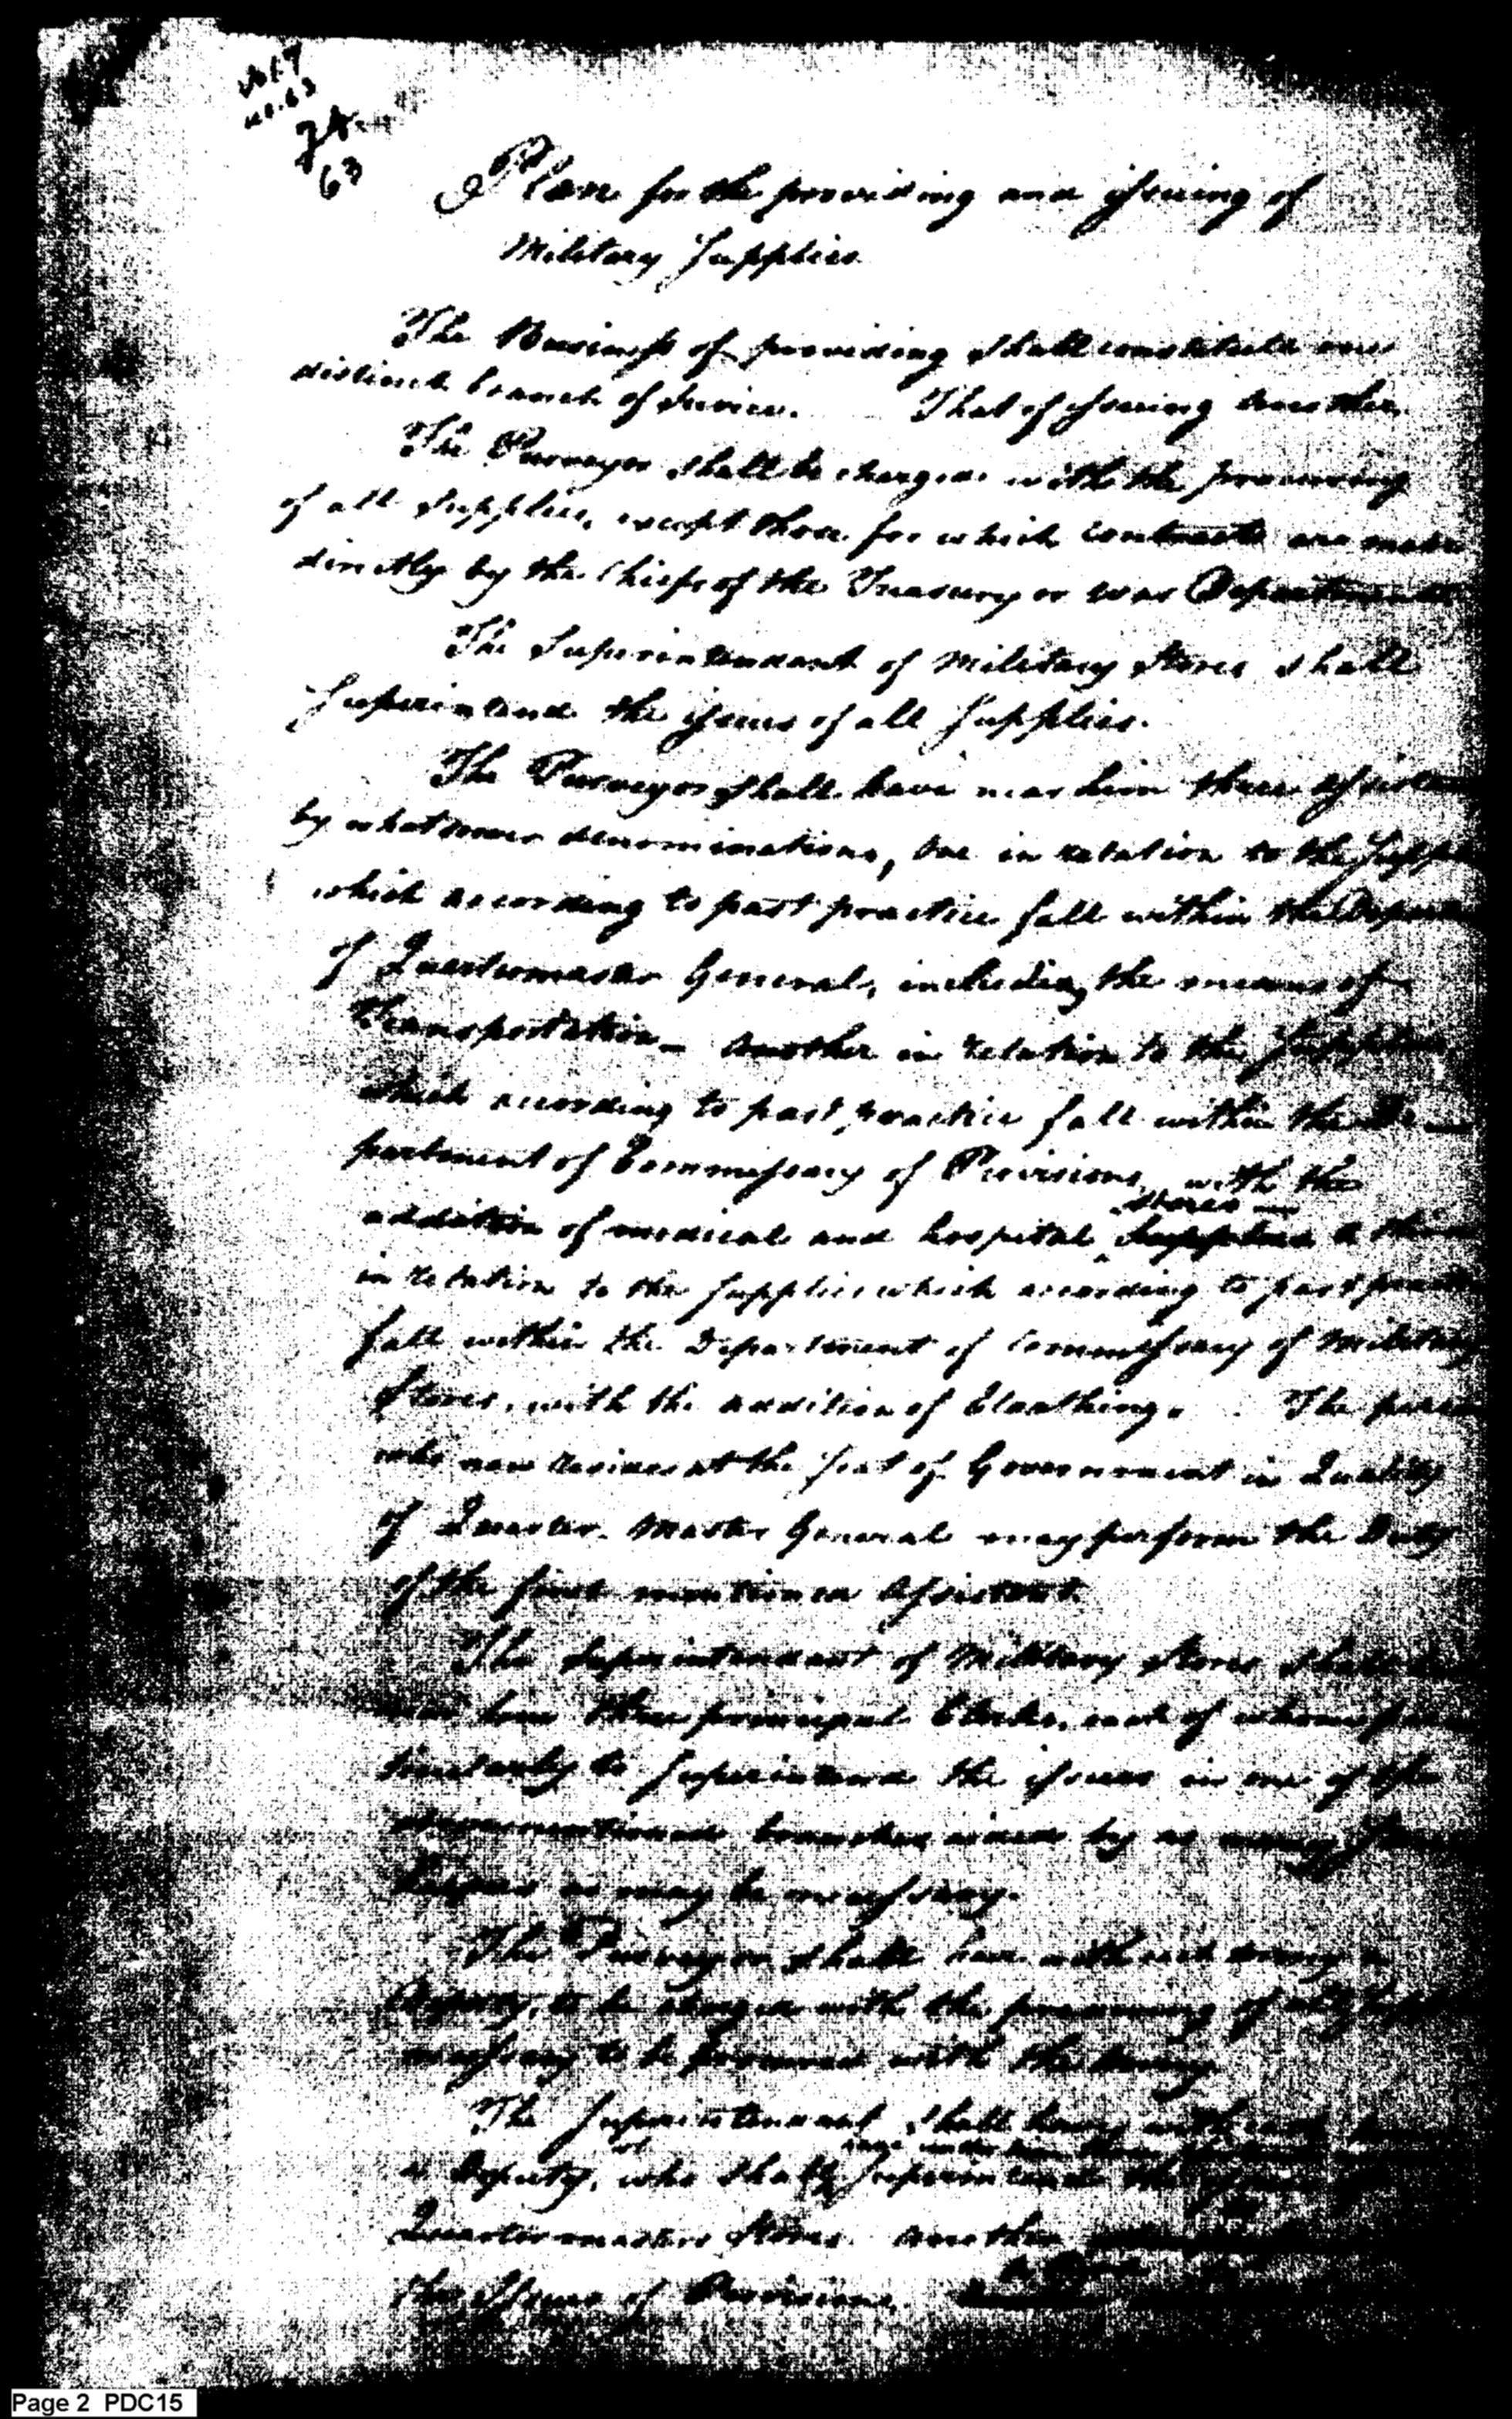 Vol. 7
no. 63
74
63
Plan for the providing and issuing of
Military Supplies
The Business of providing shall constitute one
distinct branch of Service. That of issuing another.
The Purveyor shall be charged with the procuring
of all Supplies, except those for which contracts are made
directly by the Chiefs of the Treasury or War Departments
The Superintendant of Military Stores shall
Superintend the issues of all Supplies.
The Purveyor shall have near him three
by whatsoever denominations, One in relation to the
which according to past practice fall within the
of Quartermaster General, including the means of
Transportation – Another in relation to the Supplies
Which according to past practice fall within the De-
partment of Commissary of Provisions, with the
stores
addition of medical and hospital Supplies a third
in relation to the Supplies which according to past
fall within the Department of Commissary of Military
Stores, with the addition of Cloathing. The
who now resides at the Seat of Government in Quality
of Quarter Master General may perform the Duty
of the first mentioned Assistant.
The Superintendant of Military Stores shall
him three principal Clerks, each of whom
to Superintend the issues in one of the
branches aided by as many
Keepers as may be necessary.
The Purveyor shall have with each army a
Deputy, to be charged with the procuring of all
necessary to be procured with the Army
The Superintendant shall have with each
a Deputy, who shall Superintend the
Quarter masters Stores. Another
the Issues of Provisions.
Page 2 PDC15